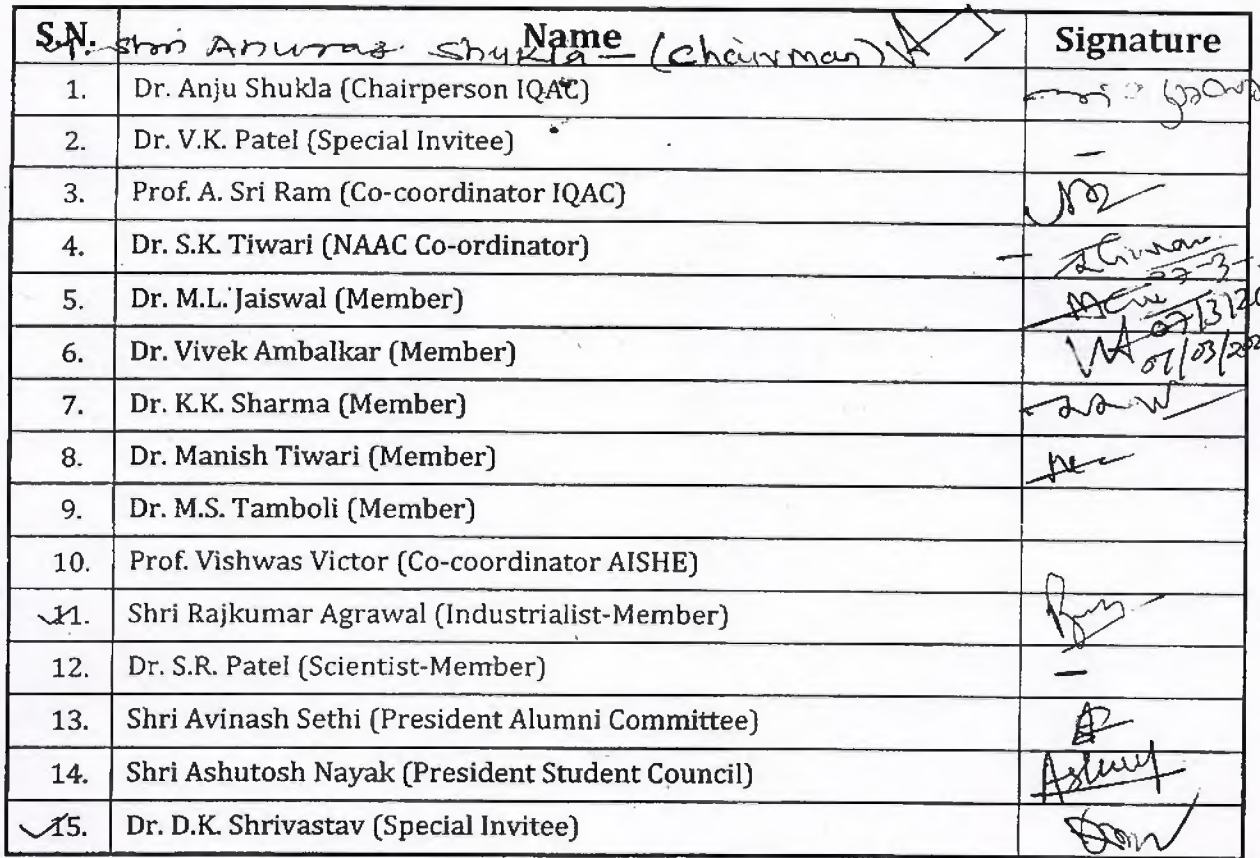 S.N. Name Signature
Shri Anurag Shukla - (Chairman)
1. Dr. Anju Shukla (Chairperson IQAC)
2. Dr. V.K. Patel (Special Invitee) –
3. Prof. A. Sri Ram (Co-coordinator IQAC)
4. Dr. S.K. Tiwari (NAAC Co-ordinator)
5. Dr. M.L. Jaiswal (Member) 07/3/20
6. Dr. Vivek Ambalkar (Member) VA 07/03/202
7. Dr. K.K. Sharma (Member)
8. Dr. Manish Tiwari (Member)
9. Dr. M.S. Tamboli (Member)
10. Prof. Vishwas Victor (Co-coordinator AISHE)
11. Shri Rajkumar Agrawal (Industrialist-Member)
12. Dr. S.R. Patel (Scientist-Member) –
13. Shri Avinash Sethi (President Alumni Committee)
14. Shri Ashutosh Nayak (President Student Council)
15. Dr. D.K. Shrivastav (Special Invitee)